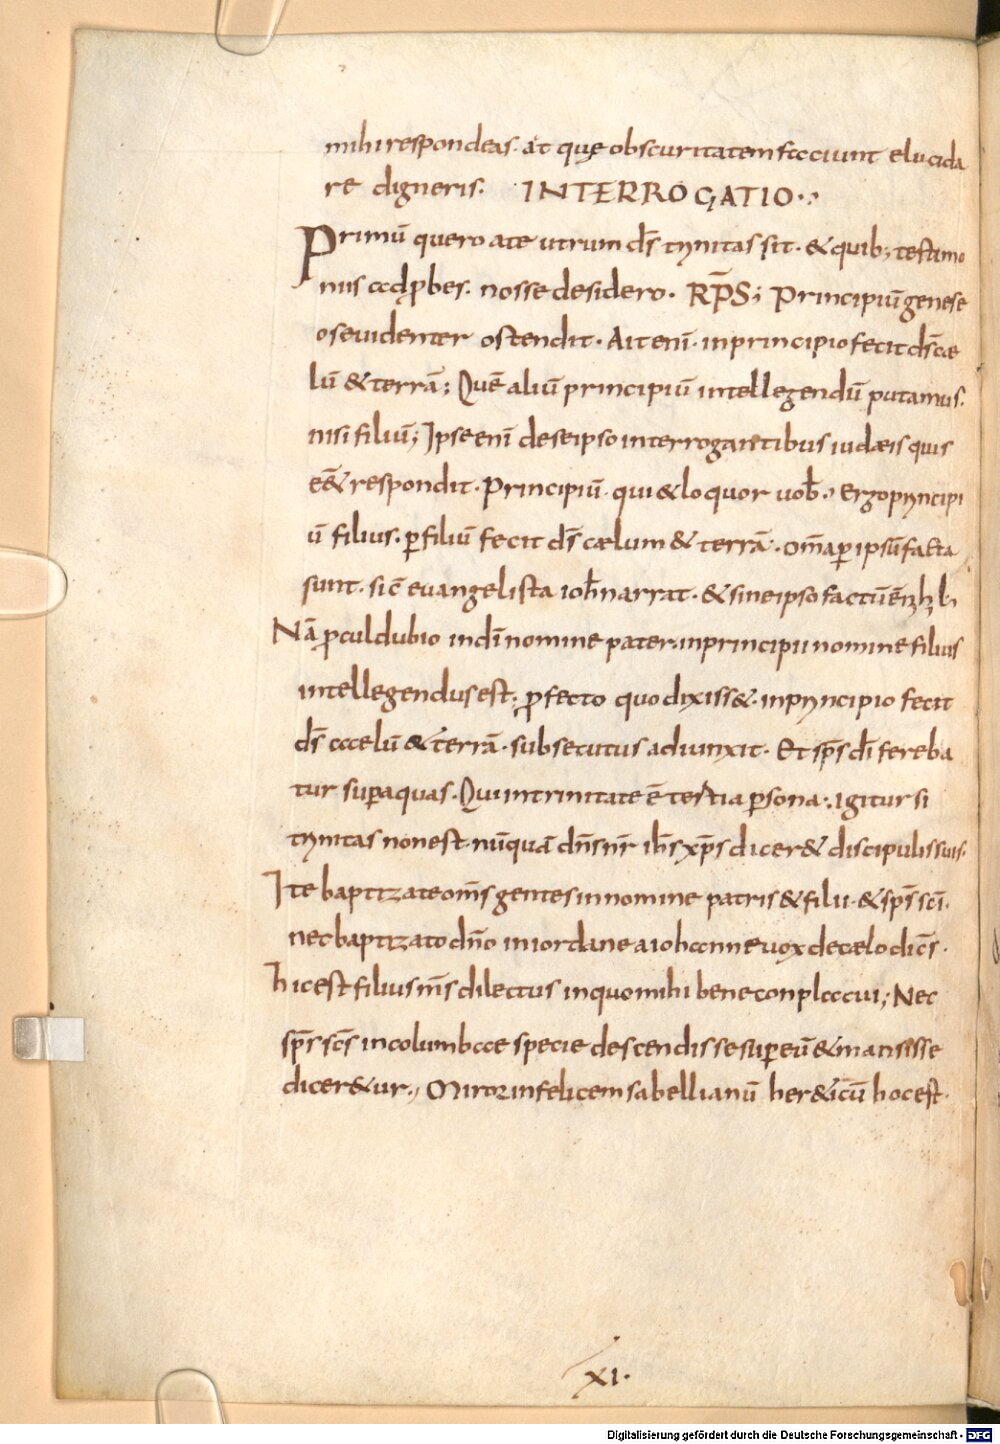 mihi respondeas. at quę obscuritatem faciunt elucida
re digneris. INTERROGATIO.
Primū quero a te utrum dŝ trinitas sit. & quib; testimo
niis adp̱bes. nosse desidero. RP̄S; Principiū genese
os evidenter ostendit. Ait eni̅. in principio fecit ds̅ cæ
lū & terrā; Quē aliū principiū intellegendū putamus.
nisi filiū; Ipse eni̅ de seipso interrogantibus iudæis quis
eē& respondit. Principiū. qui & loquor vob̅. Ergo principi
ū filius. p̱ filiū fecit ds̅ cælum & terrā. om̅a p̱ ipsū facta
sunt. sic̅ evangelista ioh̅ narrat. & sine ipso factū ē nihil;
Nā p̱cul dubio in di̅ nomine pater. in principii nomine filius
intellegendus est. p̱fecto quo dixiss&. in principio fecit
ds̅ caelū & terrā. subsecutus adiunxit. Et sps̅ di̅ fereba
tur sup̱ aquas. Qui in trinitate ē tertia p̱sona. igitur si
trinitas non est. nūquā dn̅s nr̅ ih̅s xp̅s dicer& discipulis suis.
Ite baptizate om̅s gentes in nomine patris & filii. & sps̅ sci̅.
nec baptizato dn̅o in iordane a iohanne vox de cælo dic̅s.
hic est filius m̅s dilectus in quo mihi bene conplacui; Nec
sps̅ sc̅s in columbae specie descendisse sup̱ eū & mansisse
dicer&ur. Miror infelicem sabellianū her&icū hoc est.
XI.
Digitalisierung gefördert durch die Deutsche Forschungsgemeinschaft - DFG